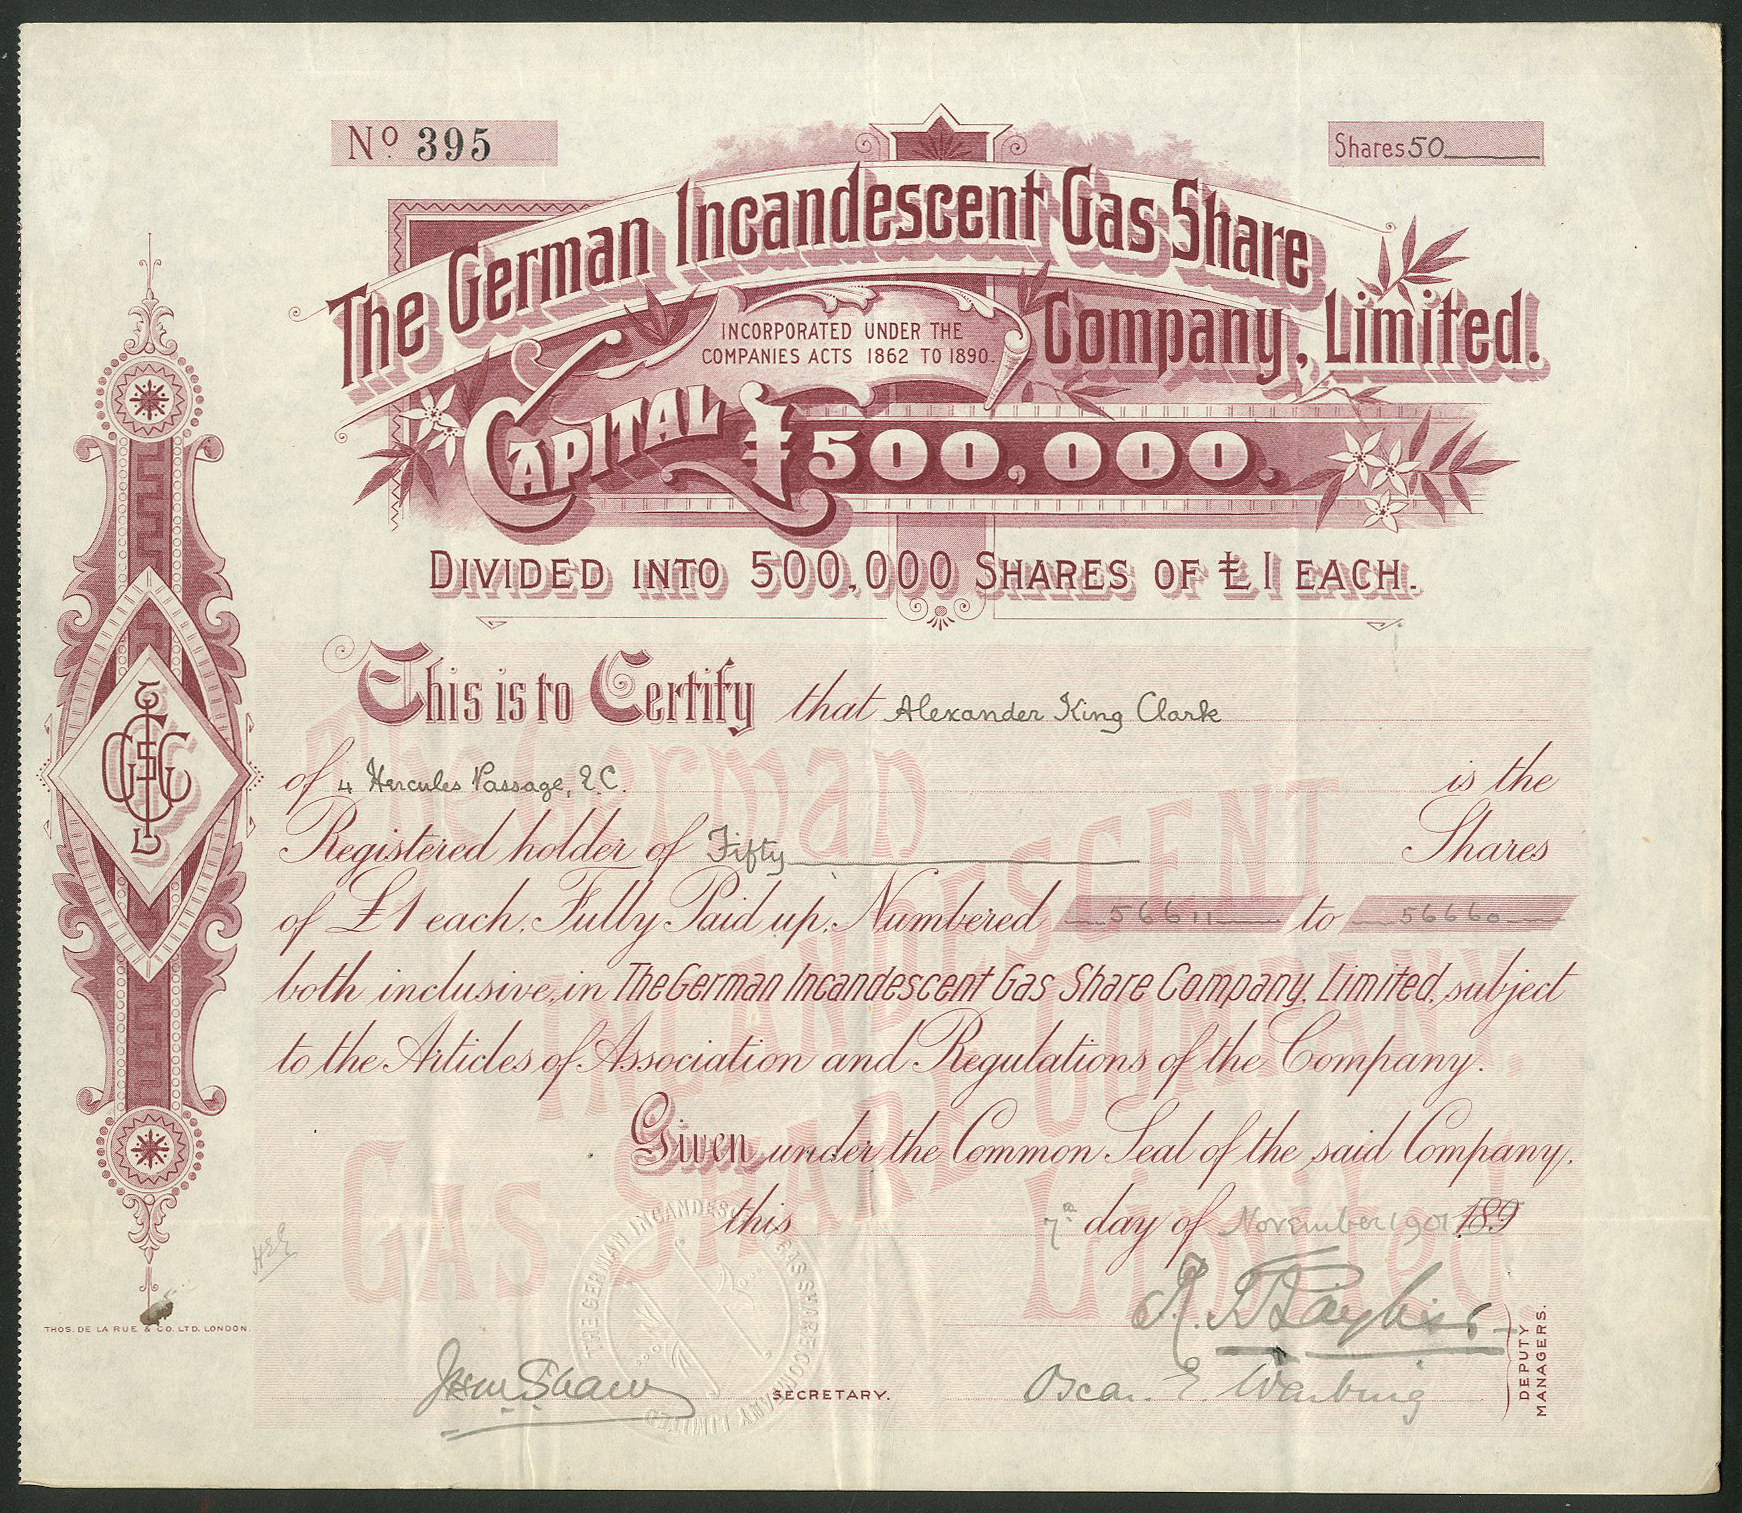 Nº 395
Shares 50
The German Incandescent Gas Share
Company, Limited.
INCORPORATED UNDER THE
COMPANIES ACTS 1862 TO 1890.
CAPITAL £500,000.
DIVIDED INTO 500,000 SHARES OF £1 EACH.
This is to Certify that Alexander King Clark
of 4 Hercules Passage, E.C. is the
Registered holder of Fifty Shares
of £1 each, Fully Paid up, Numbered 56611 to 56660
both inclusive, in The German Incandescent Gas Share Company, Limited, subject
to the Articles of Association and Regulations of the Company.
Given under the Common Seal of the said Company,
this 7th day of November 1901 189
THE GERMAN INCANDESCENT GAS SHARE COMPANY LIMITED
SECRETARY.
Oscar E. Warburg
DEPUTY
MANAGERS.
THOS. DE LA RUE & CO. LTD. LONDON.
The German
INCANDESCENT
GAS SHARE COMPANY.
Limited